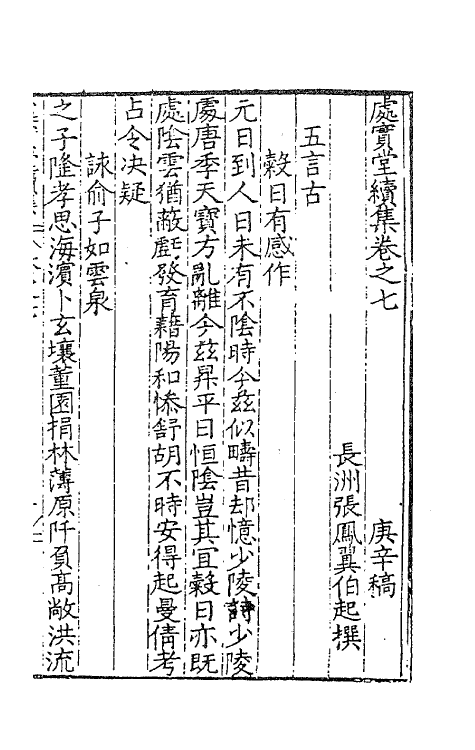 處實堂續集卷之七 庚辛稿
長洲張鳳翼伯起撰
五言古
穀日有感作
元日到人日未有不陰時今兹似疇昔却憶少陵詩少陵
處唐季天寶方亂離今兹昇平日恒陰豈其宜穀日亦既
處陰雲猶蔽虧發育藉陽和慘舒胡不時安得起曼倩考
占令决疑
詠俞子如雲泉
之子隆孝思海濵卜玄壤董園捐林薄原阡負高敞洪流